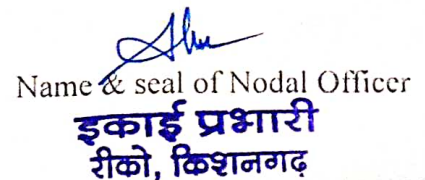 Name & seal of Nodal Officer
इकाई प्रभारी
रीको, किशनगढ़